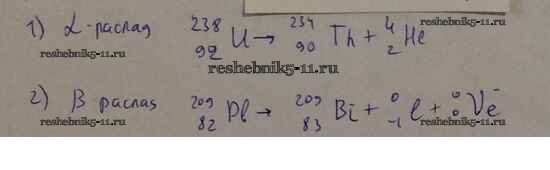 1) α-распад ²³⁸₉₂U → ²³⁴₉₀Th + ⁴₂He
reshebnik5-11.ru reshebnik5-11.ru
reshebnik5-11.ru
2) β распад ²⁰⁹₈₂Pb → ²⁰⁹₈₃Bi + ⁰₋₁e + ⁰₀Vē
reshebnik5-11.ru reshebnik5-11.ru